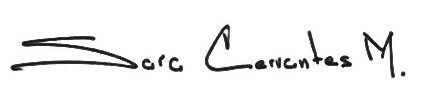 Sara Cervantes M.